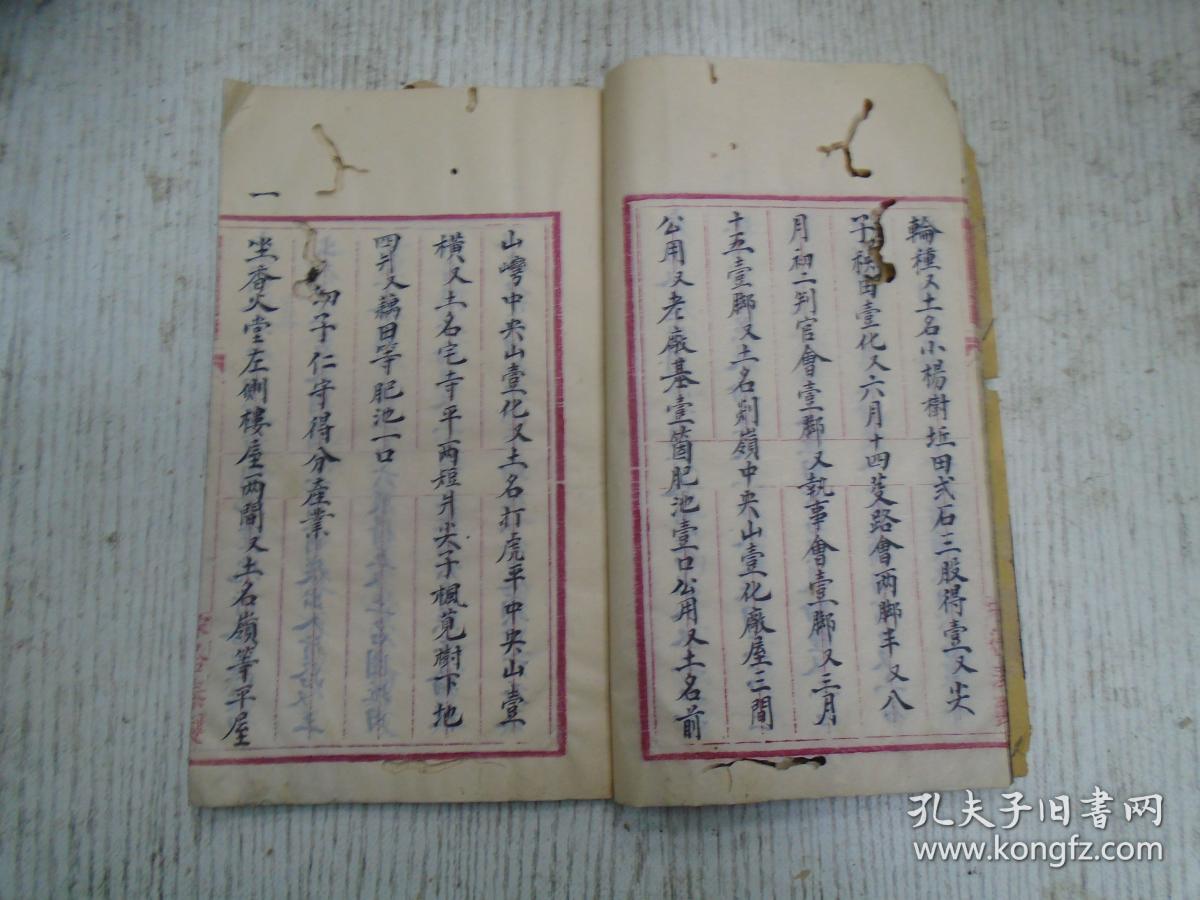 輪種又土名小楊樹坵田弍石三股得壹又尖
子秧田壹化又六月十四茭路會两脚丰又八
月初二判官會壹脚又執事會壹脚又三月
十五壹脚又土名剡嶺中央山壹化廠屋三間
公用又老廠基壹箇肥池壹口公用又土名前
山塆中央山壹化又土名打虎平中央山壹
橫又土名宅寺平两短爿尖子楓莧樹下地
四爿又藕田等肥池一口
一
幼子仁守得分產業
坐香火堂左側樓屋两間又土名嶺等平屋
孔夫子旧书网
www.kongfz.com